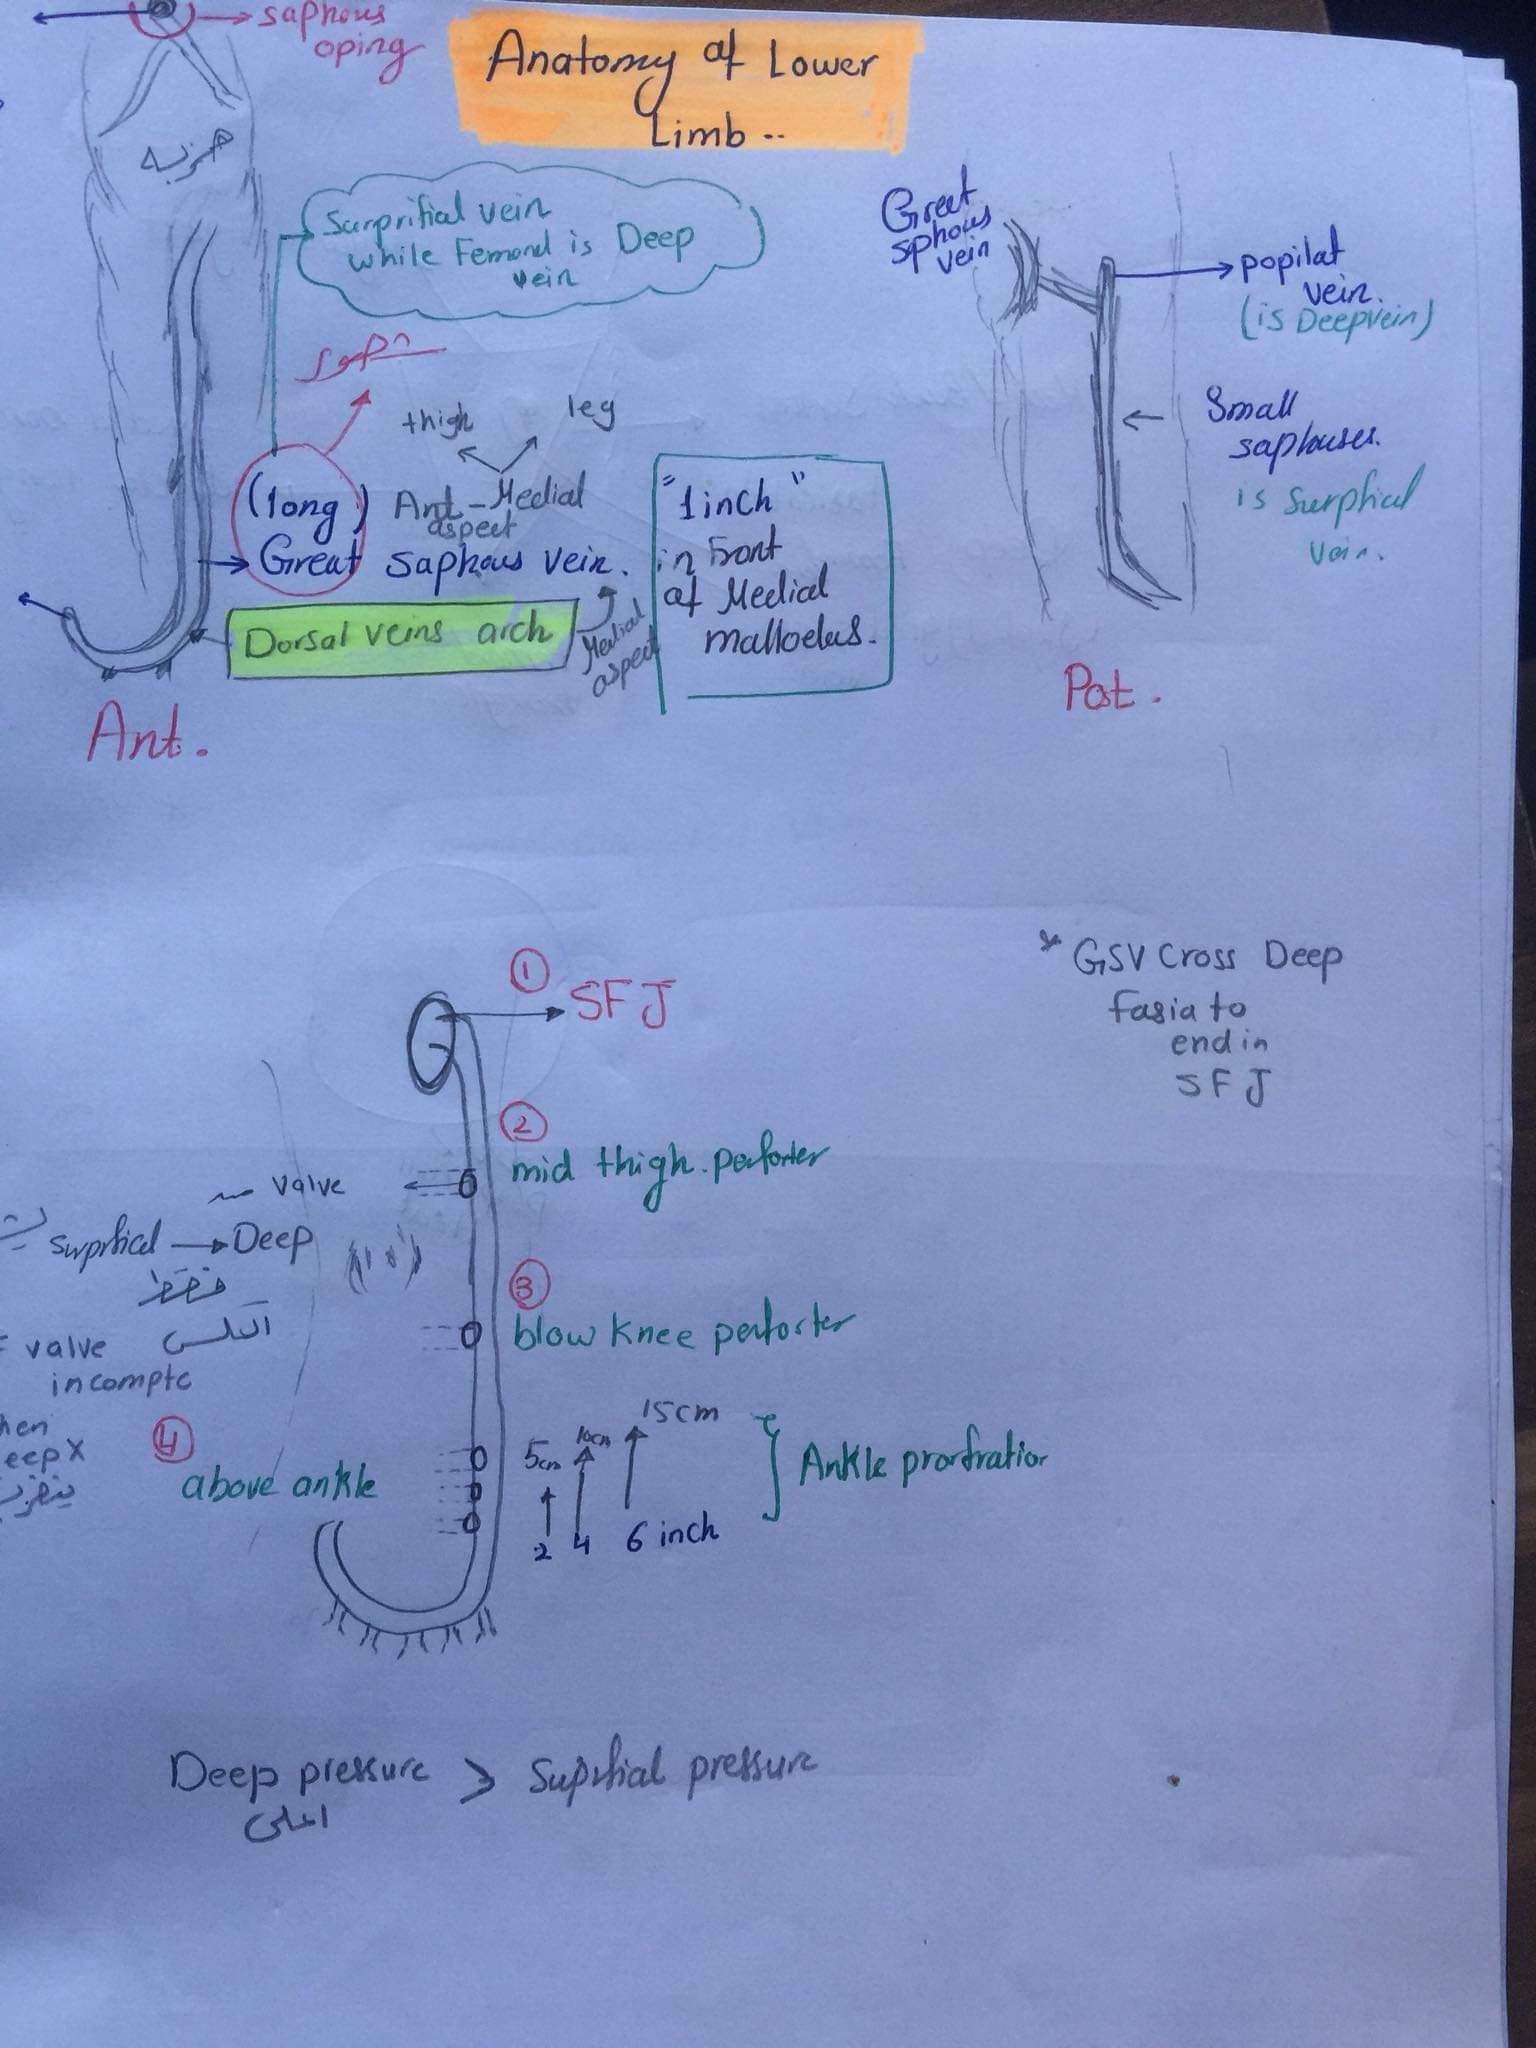 saphous
oping
Anatomy of Lower
Limb..
Surprifial vein
while Femoral is Deep
vein
thigh
leg
(long) Ant - Medial
aspect
Great saphous vein.
Dorsal veins arch
Medial
aspect
"1inch"
in Front
of Medial
malloelus.
Ant.
Great
sphous
vein
popilat
vein.
(is Deepvein)
Small
saphouses.
is Surptical
vein.
Post.
1
SFJ
* GSV Cross Deep
fasia to
end in
SFJ
2
mid thigh perforter
valve
Surprfical → Deep
فقط
3
blow knee perforter
valve
incompte
4
above ankle
5cm
10cm
15cm
2 4 6 inch
Ankle prorfration
Deep pressure > Suprfial pressure
اعلى